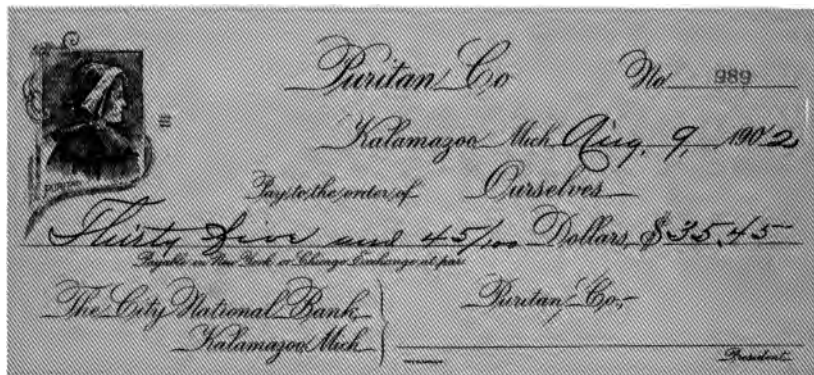 Puritan Co No 989
PURITAN
Kalamazoo Mich Aug. 9, 1902
Pay to the order of Ourselves
Thirty five and 45/100 Dollars, $35.45
Payable in New York or Chicago Exchange at par
The City National Bank
Kalamazoo, Mich
Puritan Co,-
President